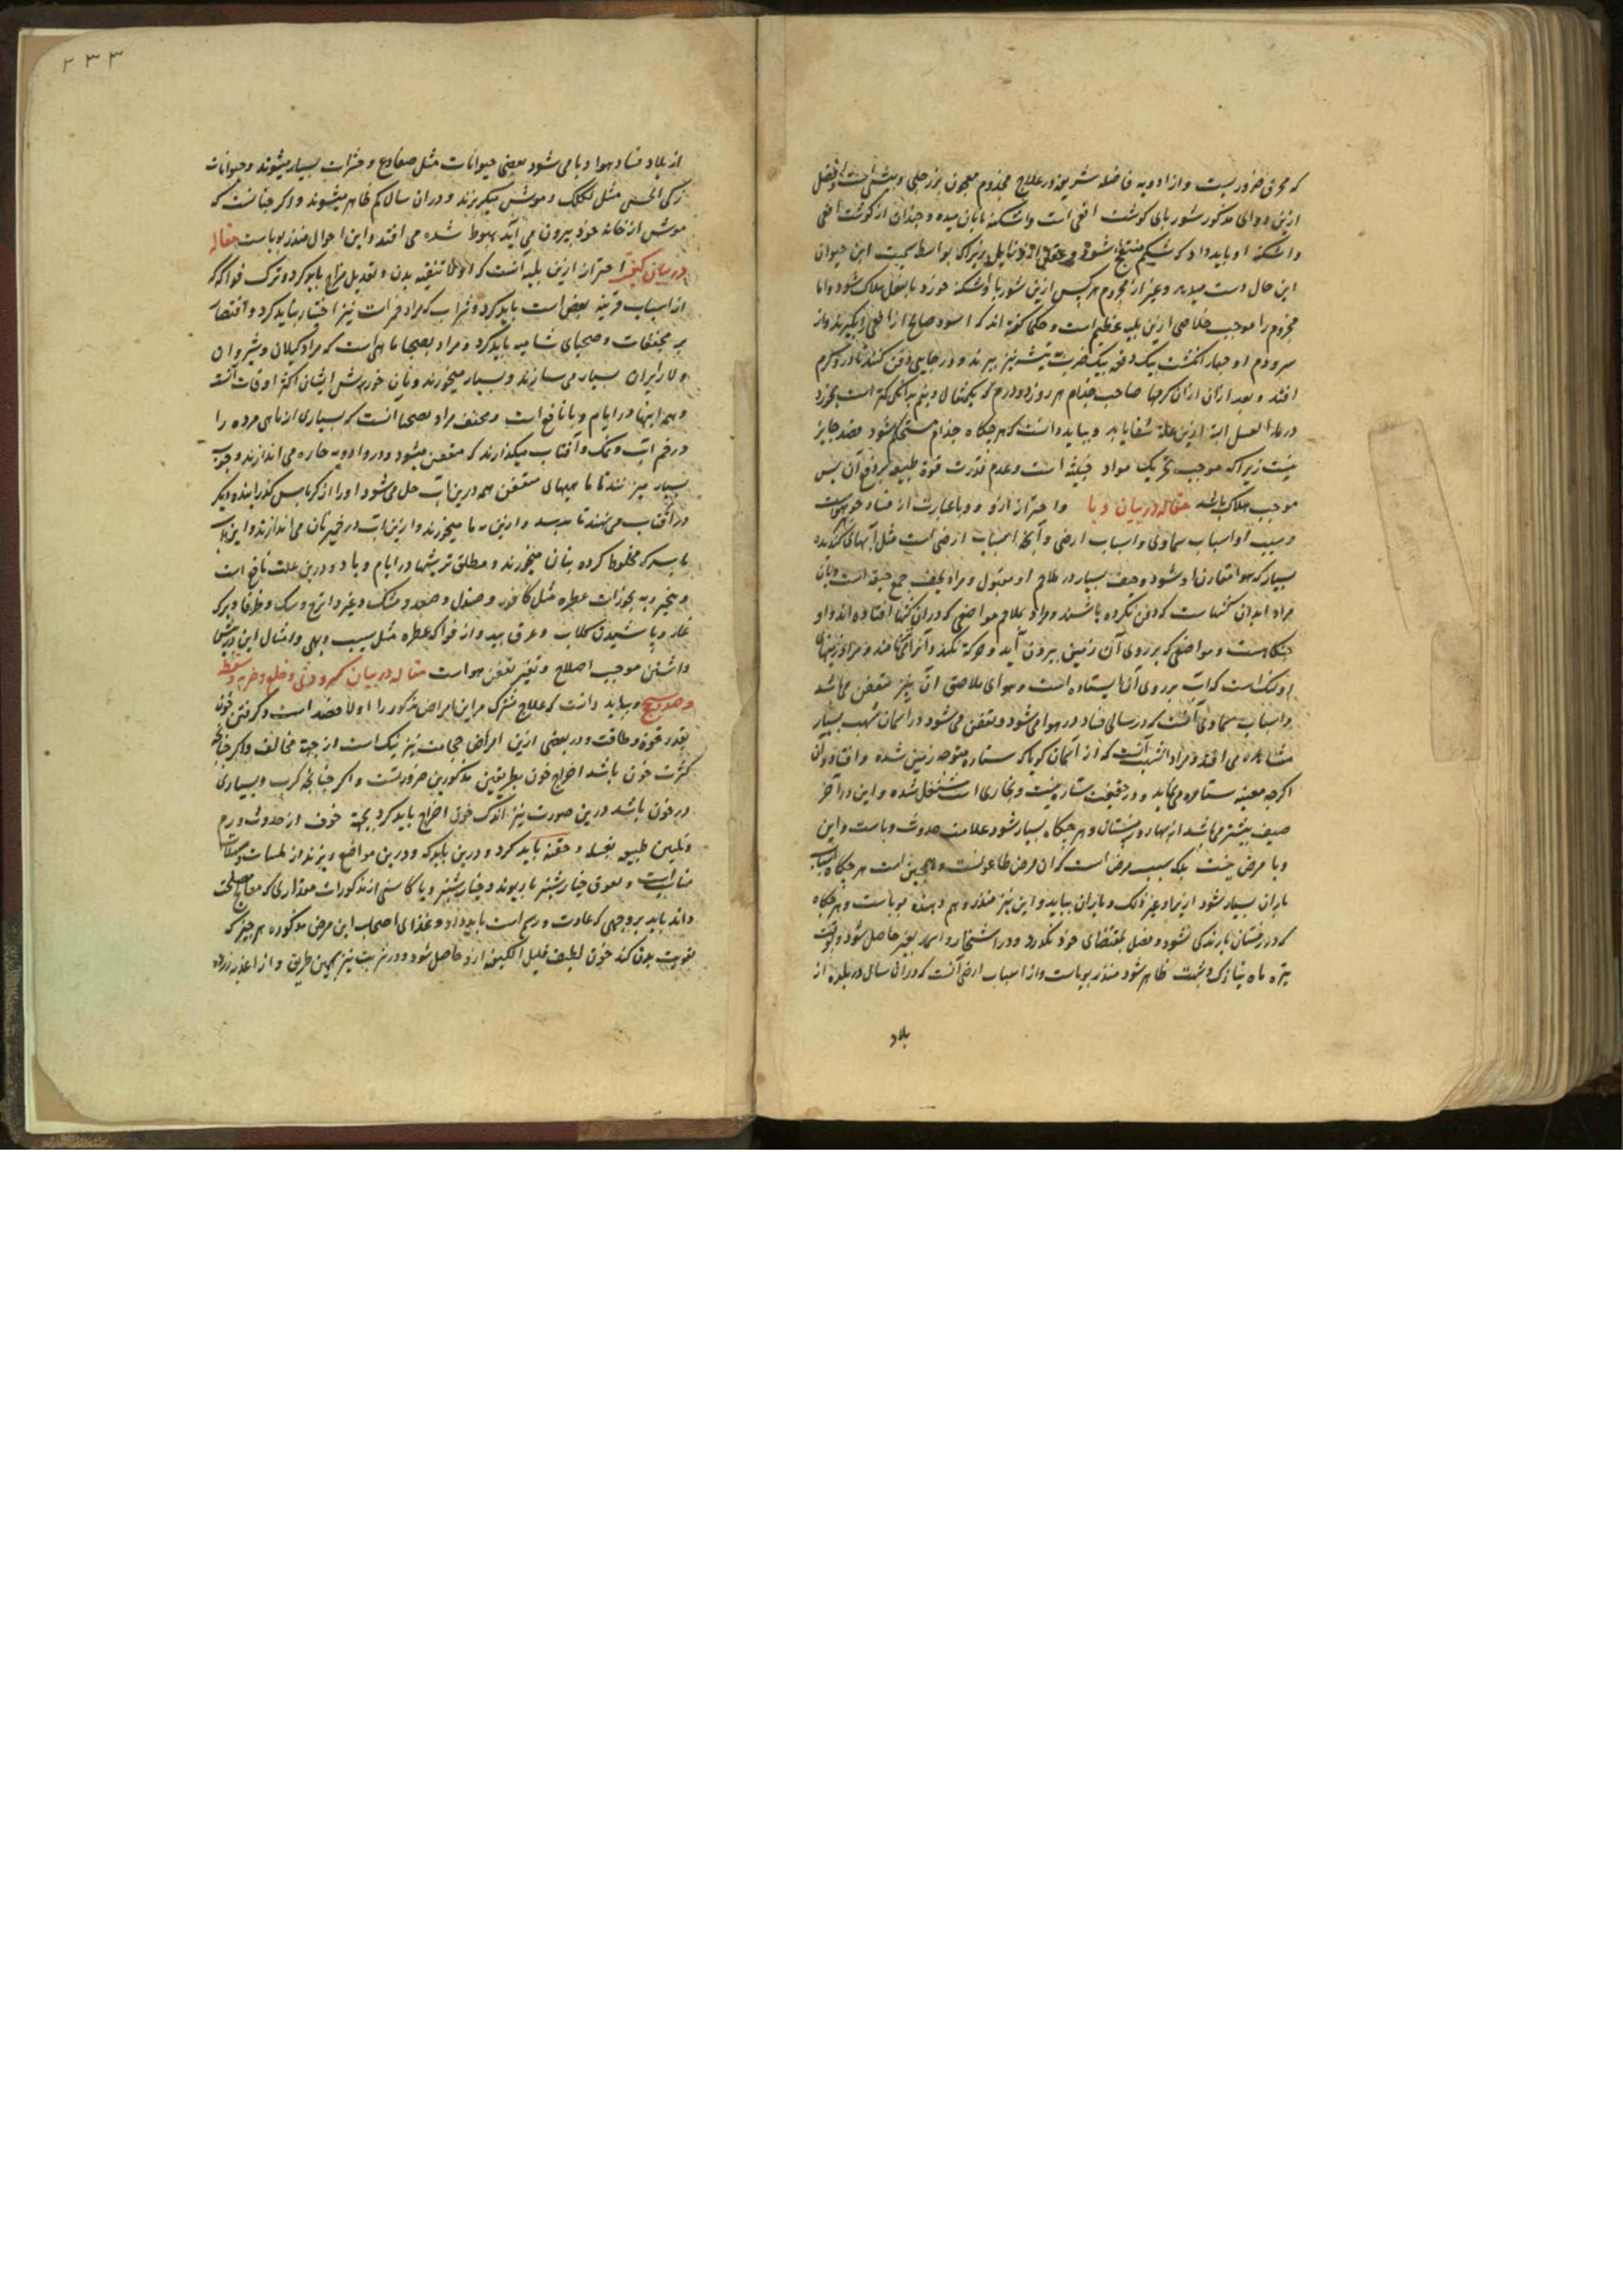 که محرق ضروریست و از ادویه فاضله شریفه در علاج مجذوم معجون بزرجلی و بیش است و افضل
ازین دوای مذکور شوربای گوشت افعی است واشکنه بانان میده و چندان از گوشت افعی
واشکنه او باید داد که شکم منتفخ شود و عقل او زایل زیراکه بواسطه سمیت این حیوان
این حال دست میدهد و غیر از مجذوم هرکس ازین شوربا و اشکنه خورد بالفعل هلاک شود و اما
مجذوم را موجب خلاصی ازین بلیه عظیم است و حکما گفته اند که اسود صالح از افعی را بگیرند و از
سر و دم او چهار انگشت بیک دفعه بیک ضرب تیشه تیز ببرند و در جایی دفن کنند تا درو کرم
افتد و بعد ازان ازان کرمها صاحب جذام هر روز دو درم که یکمثقال و نیم بدانکی کم است بخورد
در ماء العسل البته ازین علة شفا یابد و بباید دانست که هرجکاه جذام مستحکم شود فصد جایز
نیست زیراکه موجب تحریک مواد خبیثه است و عدم قدرت قوة طبیعه بر دفع آن پس
موجب هلاک باشد مقاله در بیان وبا و احتراز ازو و وبا عبارت از فساد جوهر هواست
و سبب او اسباب سماوی و اسباب ارضی و آنجه اسباب ارضی است مثل آبهای کندیده
بسیار که هوا مقارن او شود و جیف بسیار در ملاحم او مقبول و مراد بجیف جمع جیفه است و بان
مراد ابدان کشتها ست که دفن نکرده باشند و مراد بملاحم مواضعی که دران کشتها افتاده اند و او
جنکاهست و مواضعی که بر روی آن زمین بیرون آید و حرکة نکند و آنرا نز نامند و مراد زمینهای
او نمناک است که آب بر روی آنها ایستاده است و هوای ملاصق آن نیز متعفن می باشد
و اسباب سماوی آنست که در سالی فساد در هوا می شود و متعفن می شود در آسمان شهب بسیار
مشاهده می افتد و مراد از شهب آنست که از آسمان کویا که ستاره متوجه زمین شده و افتاد و آن
اکرجه بعینه ستاره می نماید و در حقیقت ستاره نیست و بخاری است مشتعل شده و این در آخر
صیف بیشتر می باشد از بهار و زمستان و هرجکاه بسیار شود علامت حدوث وباست و این
وبا مرض نیست بلکه سبب مرض است که آن مرض طاعونست و همچنین است هرجکاه اسباب
باران بسیار شود از رعد و غیر ذلک و باران نیاید و این نیز منذر و هم دهنده بوباست و هرجکاه
که در زمستان بارندگی نشود و فصل بمقتضای خود نگذرد و در اشجار و اثمار تغیر حاصل شود و بوقت
تیره ماه نیازک و شهب ظاهر شود منذر بوباست و از اسباب ارضی آنست که دران سال در بلده از
بلاد
۲۳۳
از بلاد فساد هوا و وبا می شود بعضی حیوانات مثل ضفادع و حشرات بسیار میشوند و حیوانات
زکی الحس مثل لکلک و موش میگریزند و دران سال کم ظاهر میشوند و اکر چنانست که
موش از خانه خود بیرون می آید بهوط شده می افتد و این احوال منذر بوباست مقاله
در بیان کیفیت احتراز ازین بلیه آنست که اولا تنقیه بدن و تعدیل مزاج باید کرد و ترک فواکه که
از اسباب قریبه بعض است باید کرد و شراب که مراد خمر است نیز اختیار نباید کرد و اقتصار
بر مجففات و صحنای شامیه باید کرد و مراد بصحنا ماهی است که مراد کیلان و شروان
و لار ایران بسیار می سازند و بسیار میخورند و نان خورش ایشان اکثر اوقات آنست
و هم اینها در ایام وبا نافع است و مجفف مراد بصحنا آنست که بسیاری از ماهی مرده را
در خم آب و نمک و آفتاب میگذارند که متعفن میشود و درو ادویه حاره می اندازند و جوب
بسیار میزنند تا ماهیهای متعفن همه درین آب حل می شود او را از کرباس گذرانیده دیگر
در آفتاب می نهند تا برسد و ازین ماهی ما میخورند و ازین آب در خمیر نان می اندازند و این را
با سرکه مخلوط کرده بنان میخورند و مطلق ترشیها در ایام وبا و درین علت نافع است
و تبخیر به بخورات عطره مثل کافور و صندل و صعد و مشک و عنبر و اترج و سک و طرفا و برک
غار و پاشیدن گلاب و عرق بید و از فواکه عطره مثل سیب و بهی و امثال این در پیش
داشتن موجب اصلاح و تغیر تعفن هواست مقاله در بیان کسر و وثی و خلع و ضربه و سقطه
و صدع و سحج و بباید دانست که علاج مشترک مر این امراض مذکور را اولا فصد است و گرفتن خون
بقدر قوة و طاقت و در بعضی ازین امراض حجامت نیز نیک است از جهة مخالف و اکر چنانچه
کثرت خون باشد اخراج خون بطریقین مذکورین ضروریست و اکر چنانچه کرب و بسیاری
در خون باشد درین صورت نیز اندک خون اخراج باید کرد بجهة خوف از حدوث ورم
و تلیین طبیعه بغسله و حقنه باید کرد و درین باید که و درین مواضع و پرند از لمسات و مسهلات
مناسب است و لعوق خیار شنبر با ریوند و خیار شنبر و یا کاسنی از مذکورات مقداری که معالج مصلحت
داند باید بر وجهی که عادت و رسم است باید داد و غذای اصحاب این مرض مذکوره هر چیز که
تقویت بدن کند خون لطیف قلیل الکمیه ازو حاصل شود و در شربت نیز بهمین طریق و از اغذیه زرده